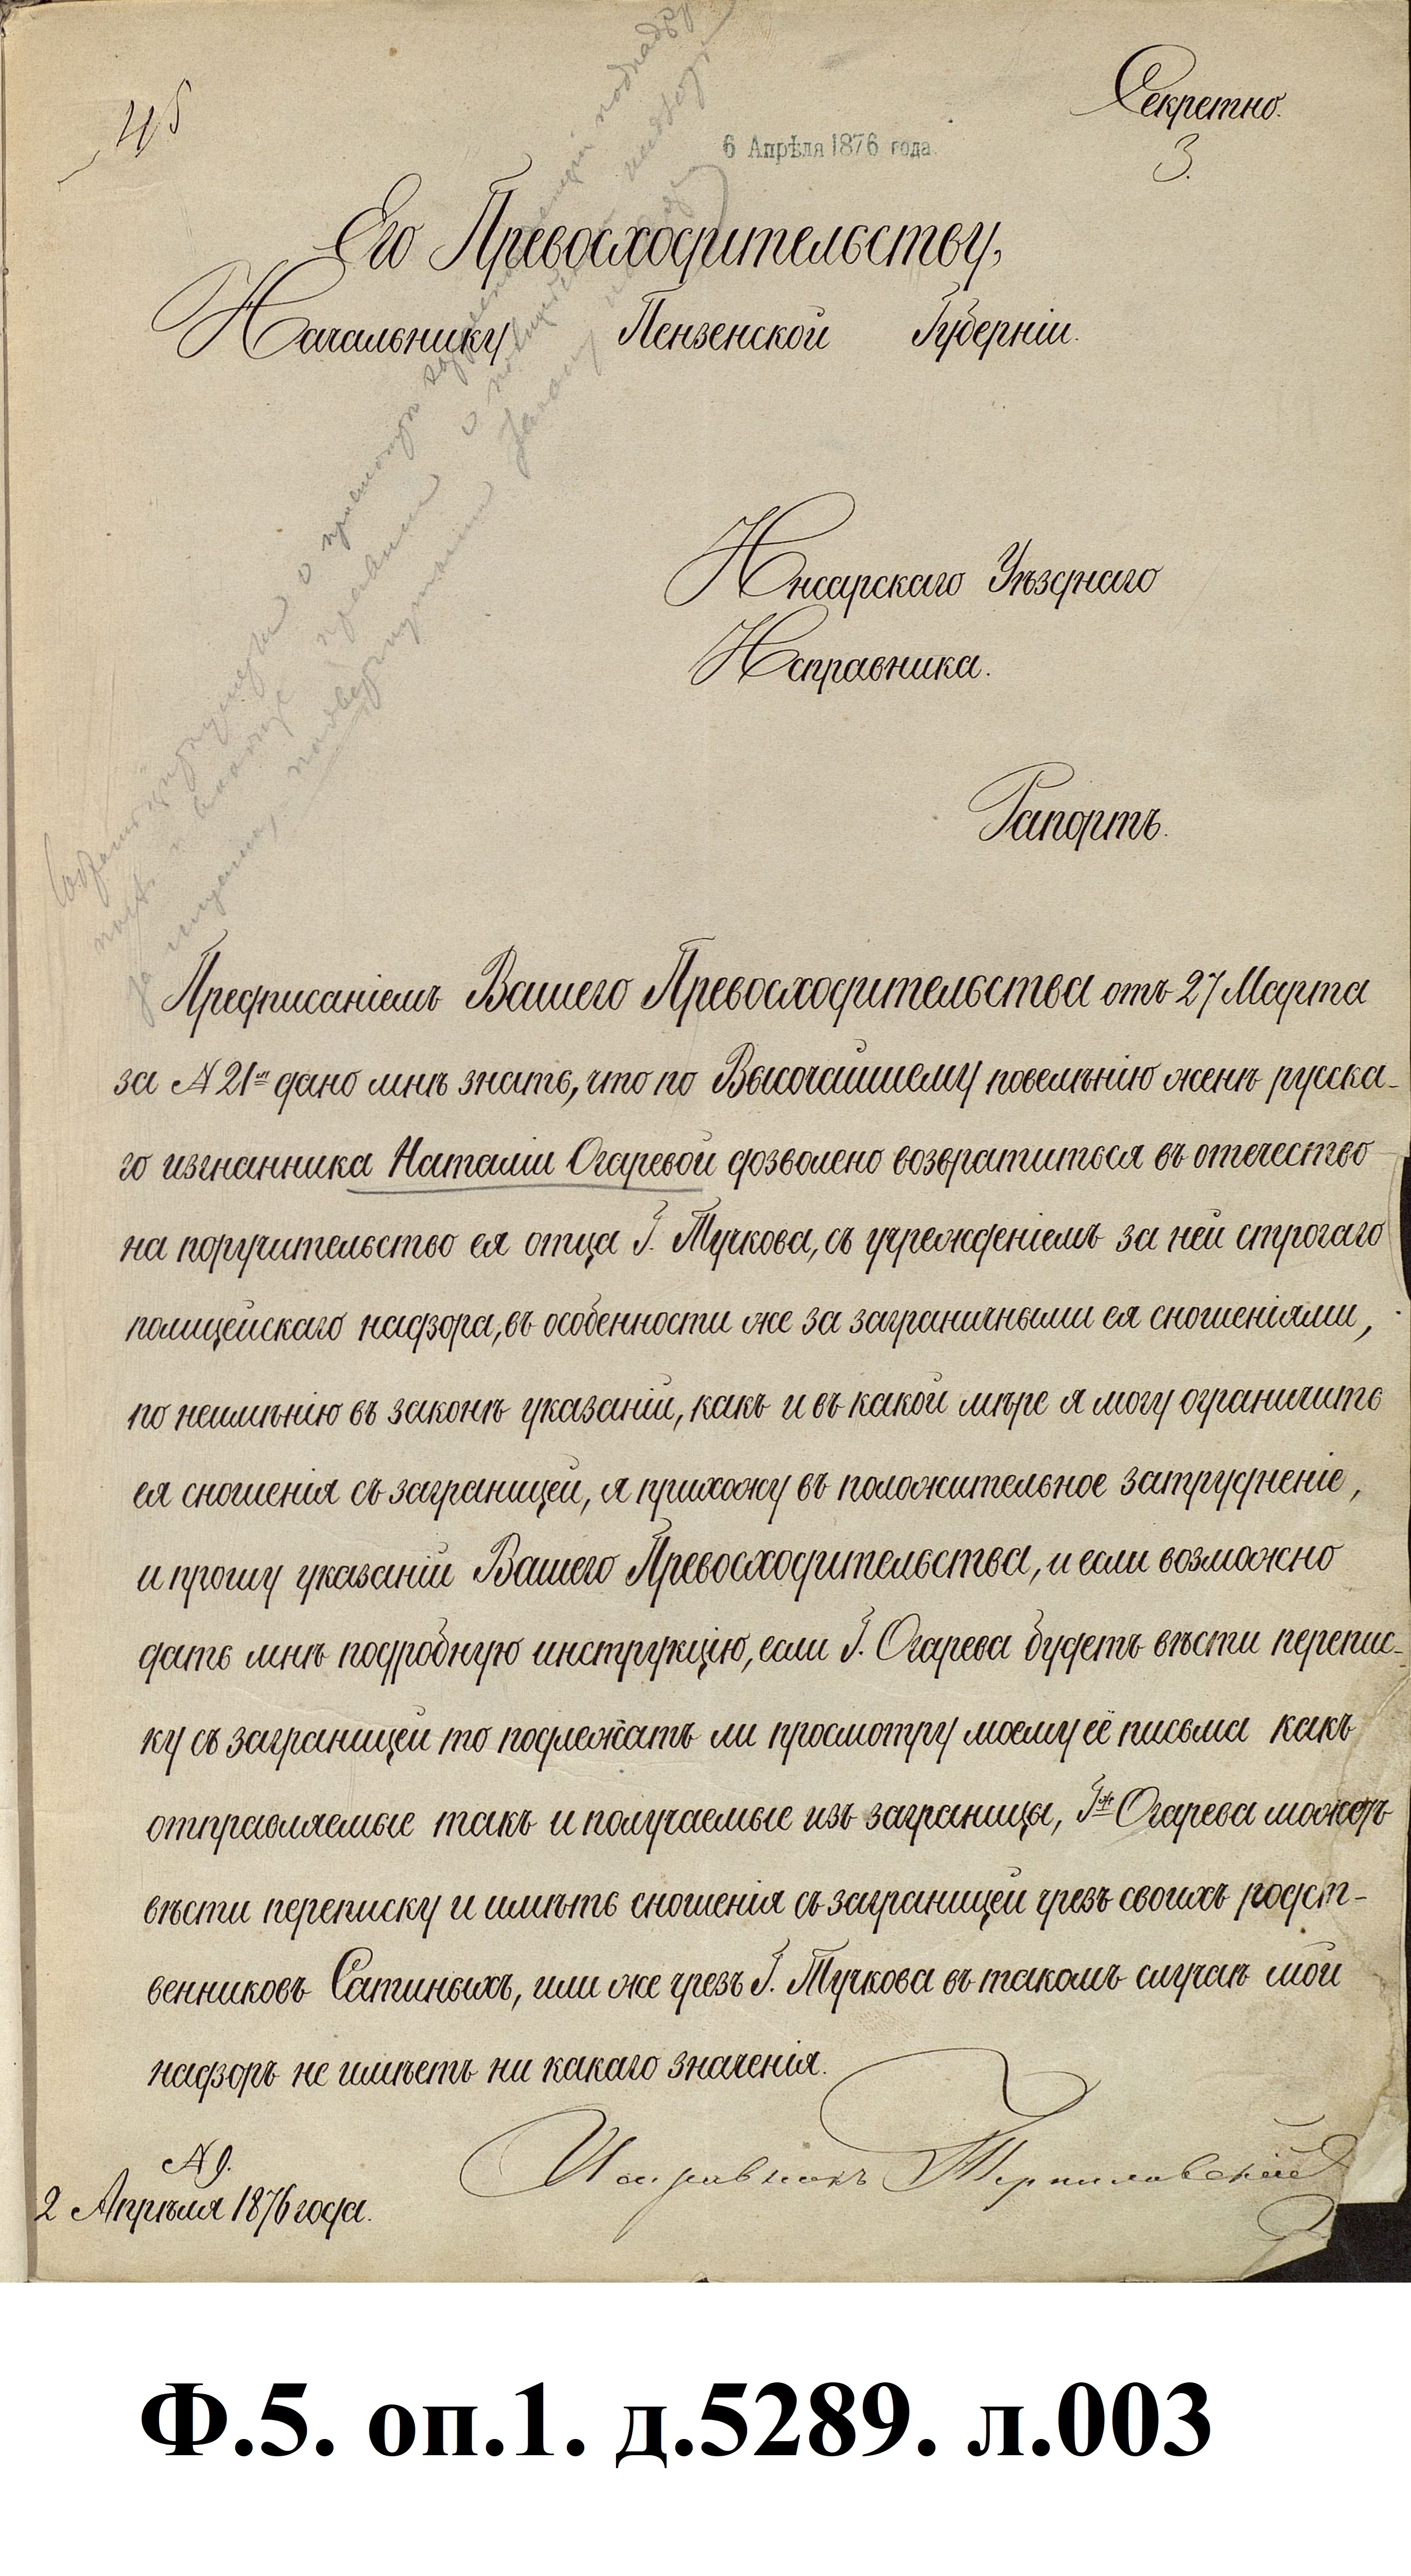 45
Секретно.
3.
6 Апрѣля 1876 года.
Его Превосходительству,
Начальнику Пензенской Губерніи.
Инсарскаго Уѣзднаго
Исправника.
Рапортъ.
Предписаніемъ Вашего Превосходительства отъ 27 Марта
за N 21м дано мнѣ знать, что по Высочайшему повелѣнію женѣ русска-
го изгнанника Наталіи Огаревой дозволено возвратиться въ отечество
на поручительство ея отца Г. Тучкова, съ учрежденіемъ за ней строгаго
полицейскаго надзора, въ особенности же за заграничными ея сношеніями,
по неимѣнію въ законѣ указаній, какъ и въ какой мѣре я могу ограничить
ея сношенія съ заграницей, я прихожу въ положительное затрудненіе,
и прошу указаній Вашего Превосходительства, и если возможно
дать мнѣ подробную инструкцію, если Г. Огарева будетъ вѣсти перепис-
ку съ заграницей то подлежатъ ли просмотру моему её письма какъ
отправляемые такъ и получаемые изъ заграницы, Гжа Огарева можетъ
вѣсти переписку и имѣть сношенія съ заграницей чрезъ своихъ родст-
венниковъ Сатиныхъ, или же чрезъ Г. Тучкова въ такомъ случаѣ мой
надзоръ не имѣетъ ни какаго значенія.
N 9.
2 Апрѣля 1876 года.
Исправникъ
Ф.5. оп.1. д.5289. л.003